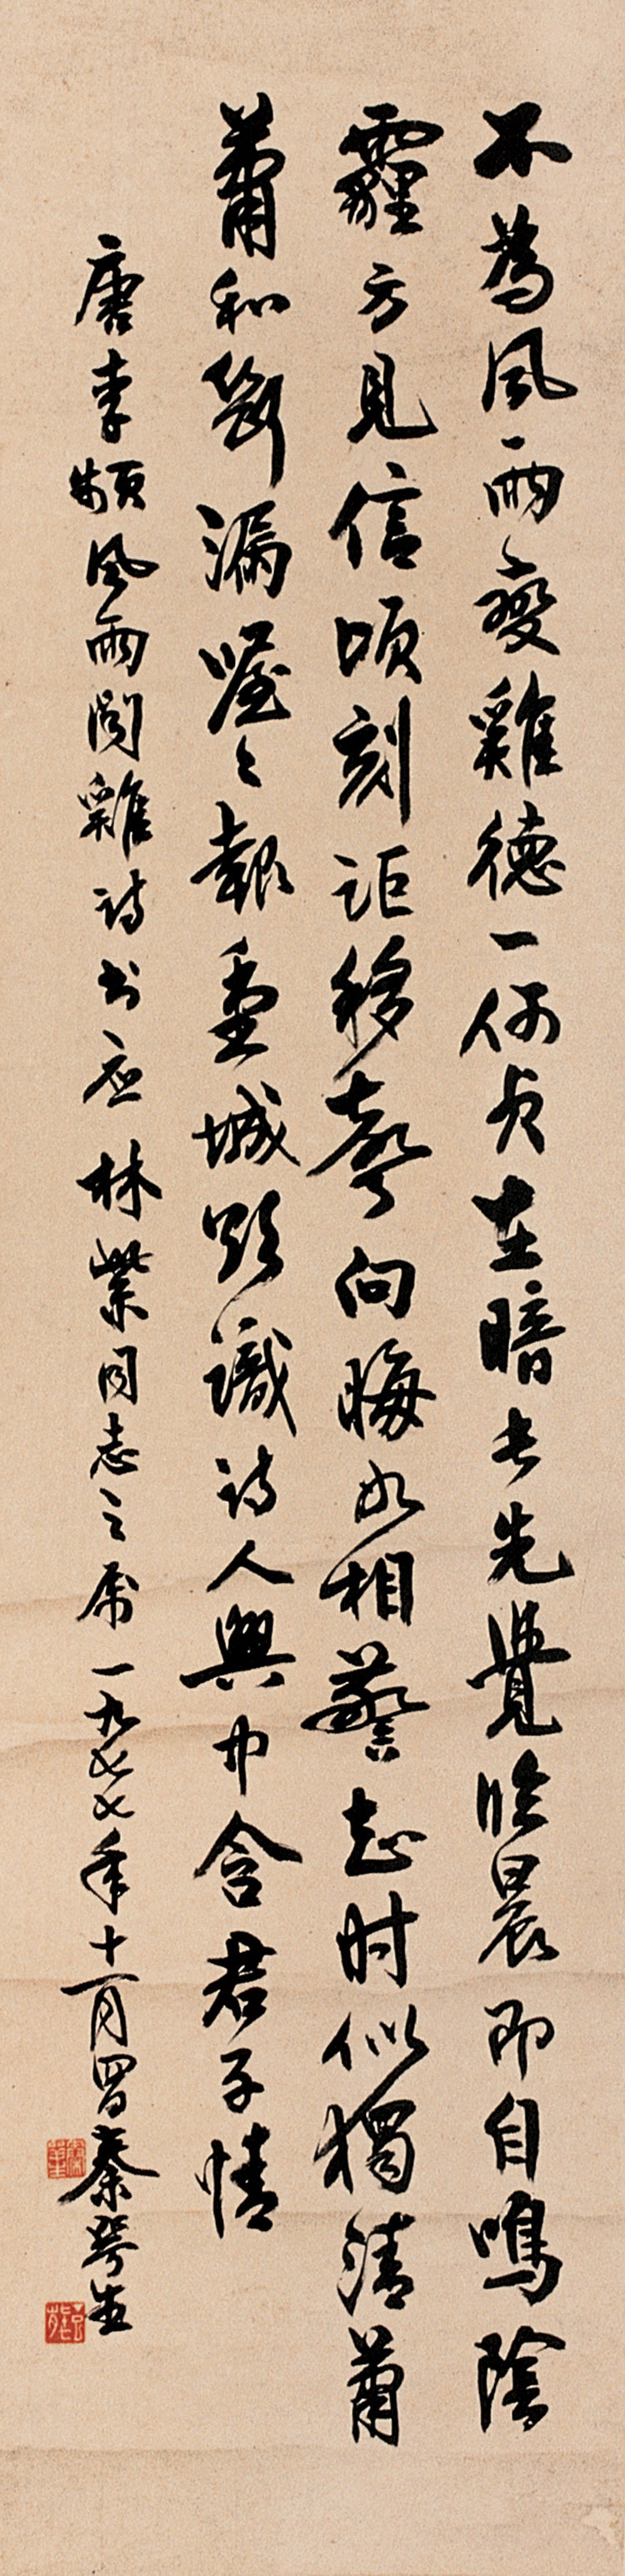 不為風雨變雞德一何貞在暗長先覺臨晨即自鳴陰
霾方見信頃刻詎移聲向晦如相警起时似獨清蕭
蕭和斷漏喔々報重城欲識詩人興中含君子情
唐李頻風雨聞雞詩书应林紫同志之屬一九七七年十一月秦咢生